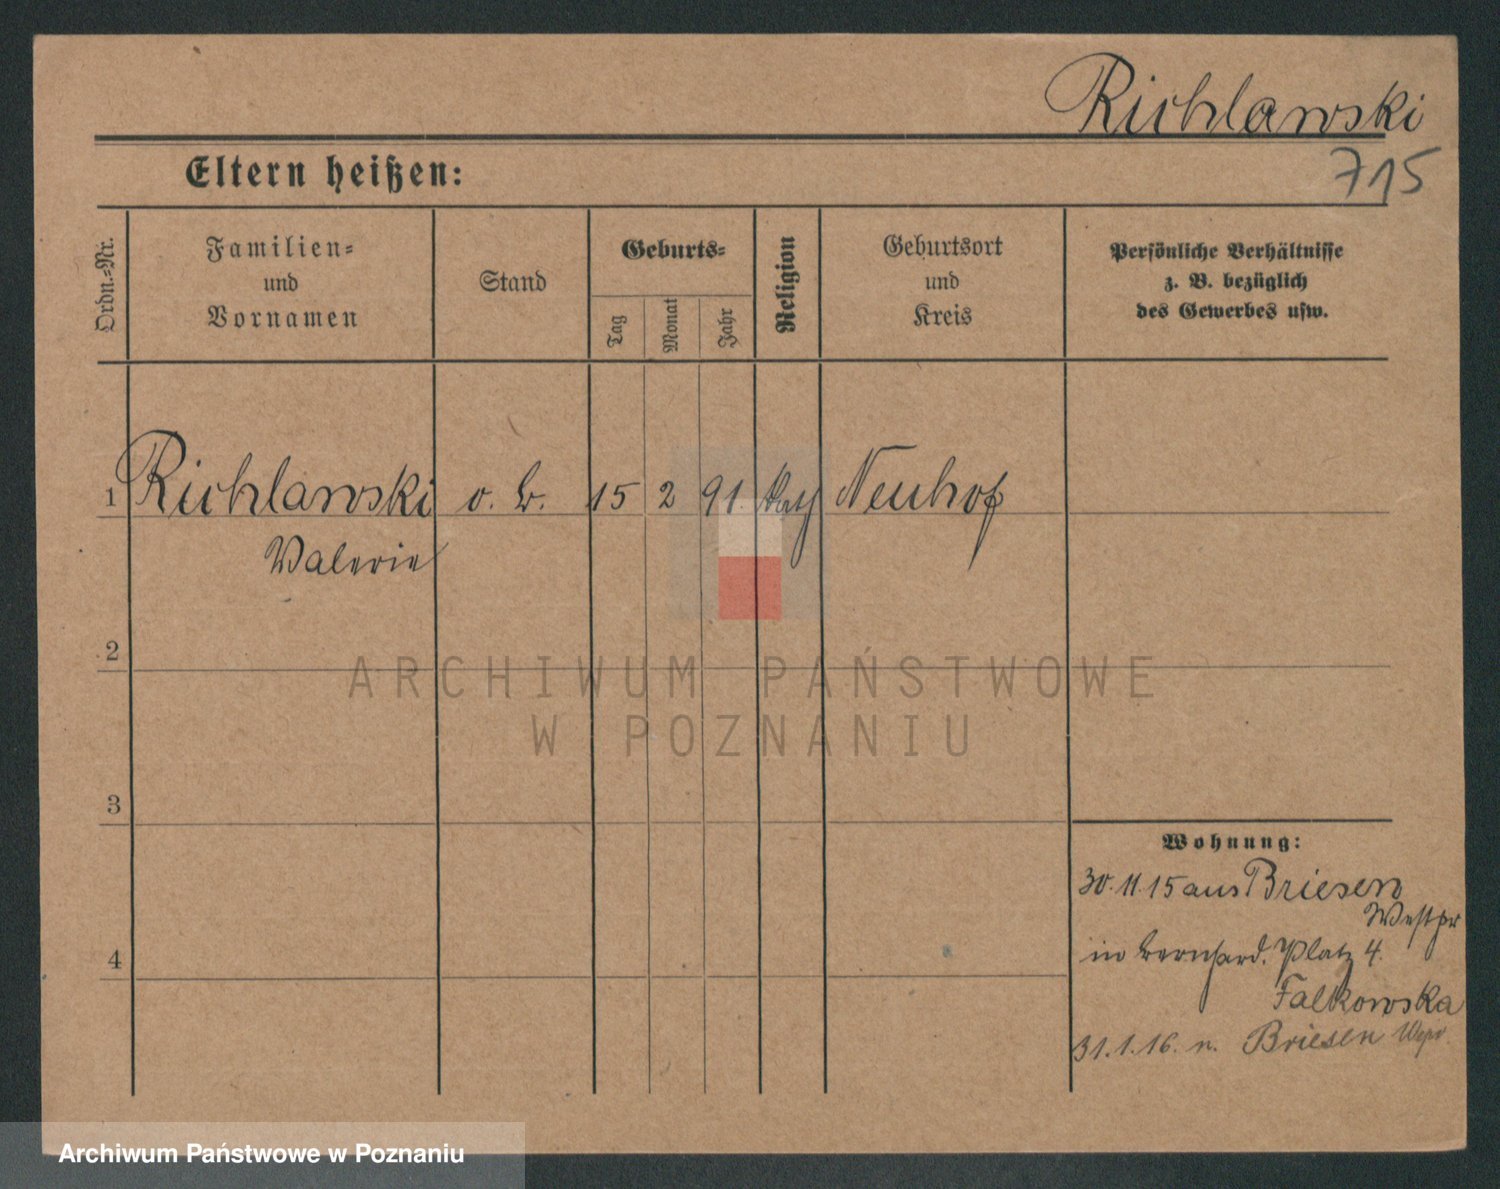 Richlawski
715
Eltern heißen:
Ordn.=Nr.
Familien=
und
Vornamen
Stand
Geburts=
Tag
Monat
Jahr
Religion
Geburtsort
und
Kreis
Persönliche Verhältnisse
z. B. bezüglich
des Gewerbes usw.
1 Richlawski o. B. 15 2 91. kath Neuhof
Valerie
2
ARCHIWUM PAŃSTWOWE
W POZNANIU
3
Wohnung:
30.11.15 aus Briesen
Westpr
4
in Bernhard. Platz 4.
Falkowska
31.1.16. n. Briesen Wpr.
Archiwum Państwowe w Poznaniu